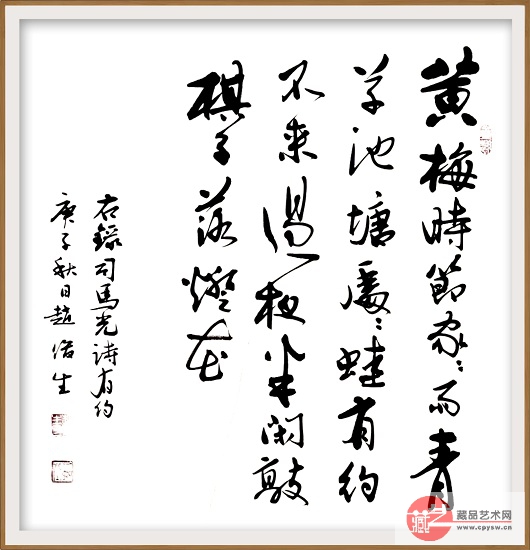 黄梅時節家々雨青
草池塘處々蛙有約
不来過夜半闲敲
棋子落燈花
右錄司馬光詩有約
庚子秋日趙生
藏品艺术网
www.cpysw.cn